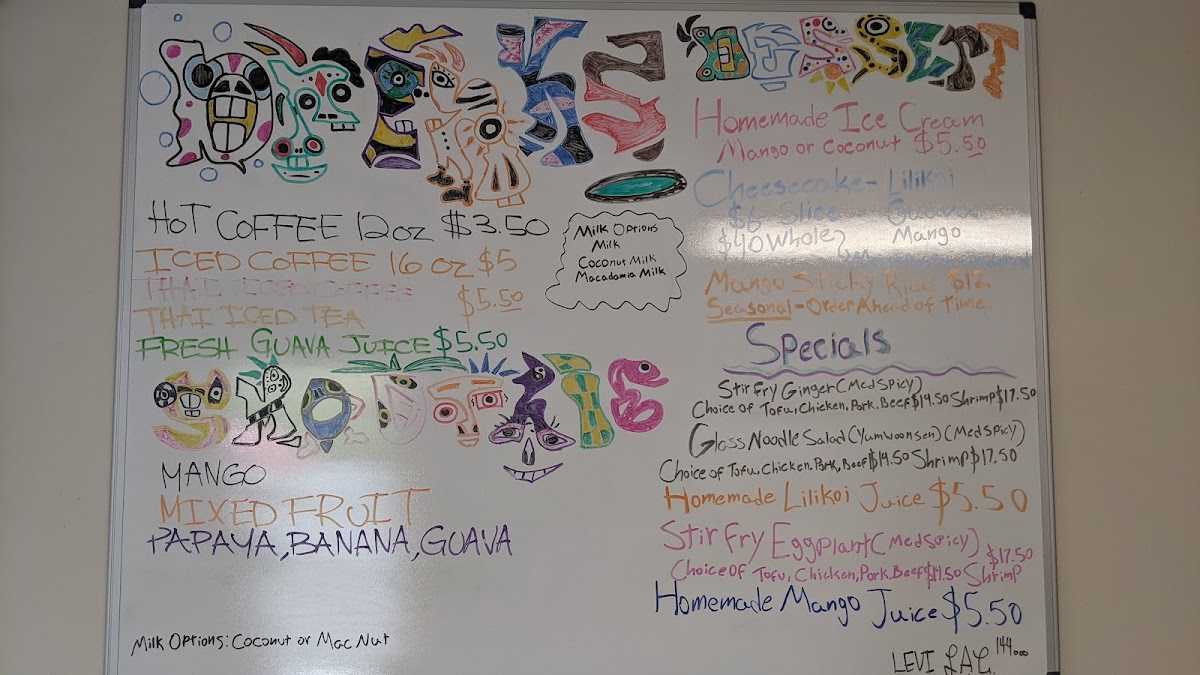 DRINKS
HOT COFFEE 12oz $3.50
ICED COFFEE 16 oz $5
THAI ICED COFFEE
THAI ICED TEA $5.50
FRESH GUAVA JUICE $5.50
Milk Options
Milk
Coconut Milk
Macadamia Milk
SMOOTHIE
MANGO
MIXED FRUIT
PAPAYA, BANANA, GUAVA
Milk Options: Coconut or Mac Nut
DESSERT
Homemade Ice Cream
Mango or Coconut $5.50
Cheesecake- Lilikoi
$6 Slice Guava
$40 Whole Mango
Mango Sticky Rice $12
Seasonal-Order Ahead of Time.
Specials
Stir Fry Ginger (Med Spicy)
Choice of Tofu, Chicken, Pork, Beef $14.50 Shrimp $17.50
Glass Noodle Salad (Yumwoonsen) (Med Spicy)
Choice of Tofu, Chicken, Pork, Beef $14.50 Shrimp $17.50
Homemade Lilikoi Juice $5.50
Stir Fry Eggplant (Med Spicy)
Choice of Tofu, Chicken, Pork, Beef $14.50 Shrimp $17.50
Homemade Mango Juice $5.50
LEVI